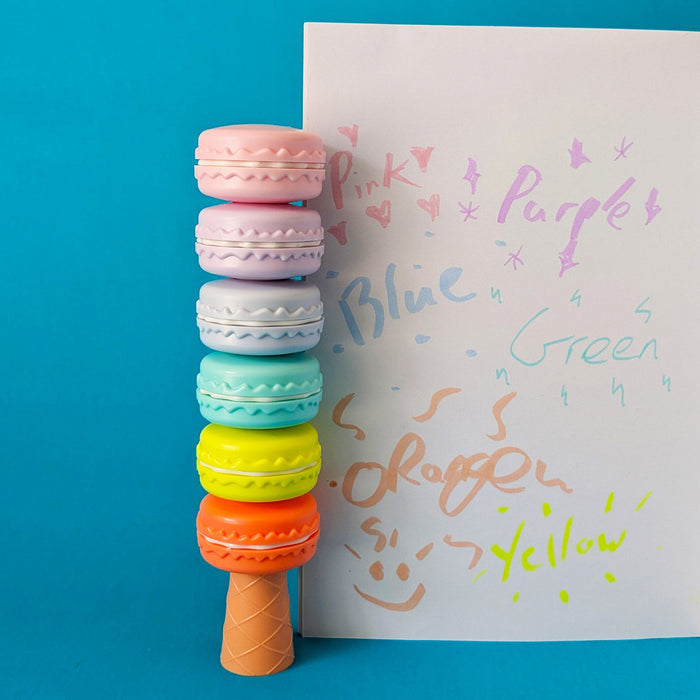 Pink
Purple
Blue
Green
ORangen
Yellow